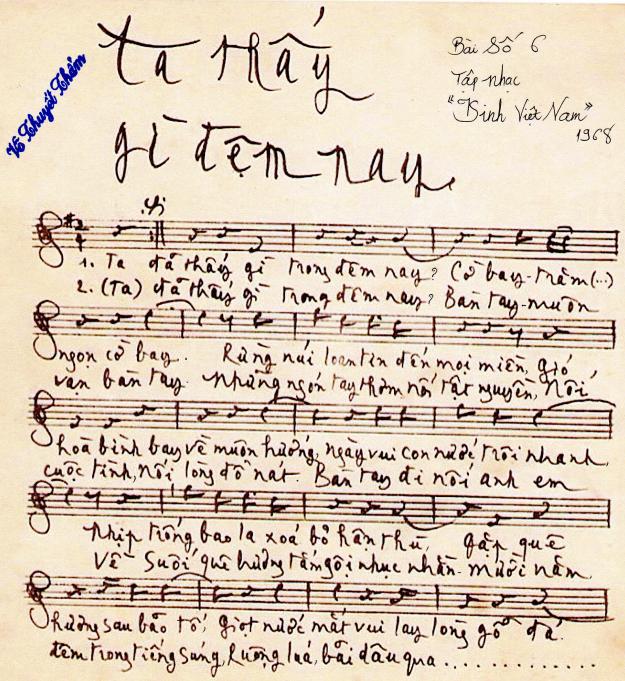 Ta thấy
gì đêm nay
Bài Số 6
Tập nhạc
"Kinh Việt Nam"
1968
Võ Thuyết Thẩm
1. Ta đã thấy gì trong đêm nay? Cờ bay trăm (...)
2. (Ta) đã thấy gì trong đêm nay? Bàn tay muôn
ngọn cờ bay. Rừng núi loan tin đến mọi miền, gió
vạn bàn tay. Những ngón tay thơm nối tật nguyền, Nối
hoà bình bay về muôn hướng, ngày vui con nước trôi nhanh,
cuộc tình, nối lòng đổ nát. Bàn tay đi nối anh em
Nhịp trống bao la xoá bỏ hận thù, gặp quê
Về suối quê hương tắm gội nhục nhằn. Mười năm,
hương sau bão tố, giọt nước mắt vui lay lòng gỗ đá.
đêm trong tiếng súng, Ruộng lúa, bãi dâu qua ............